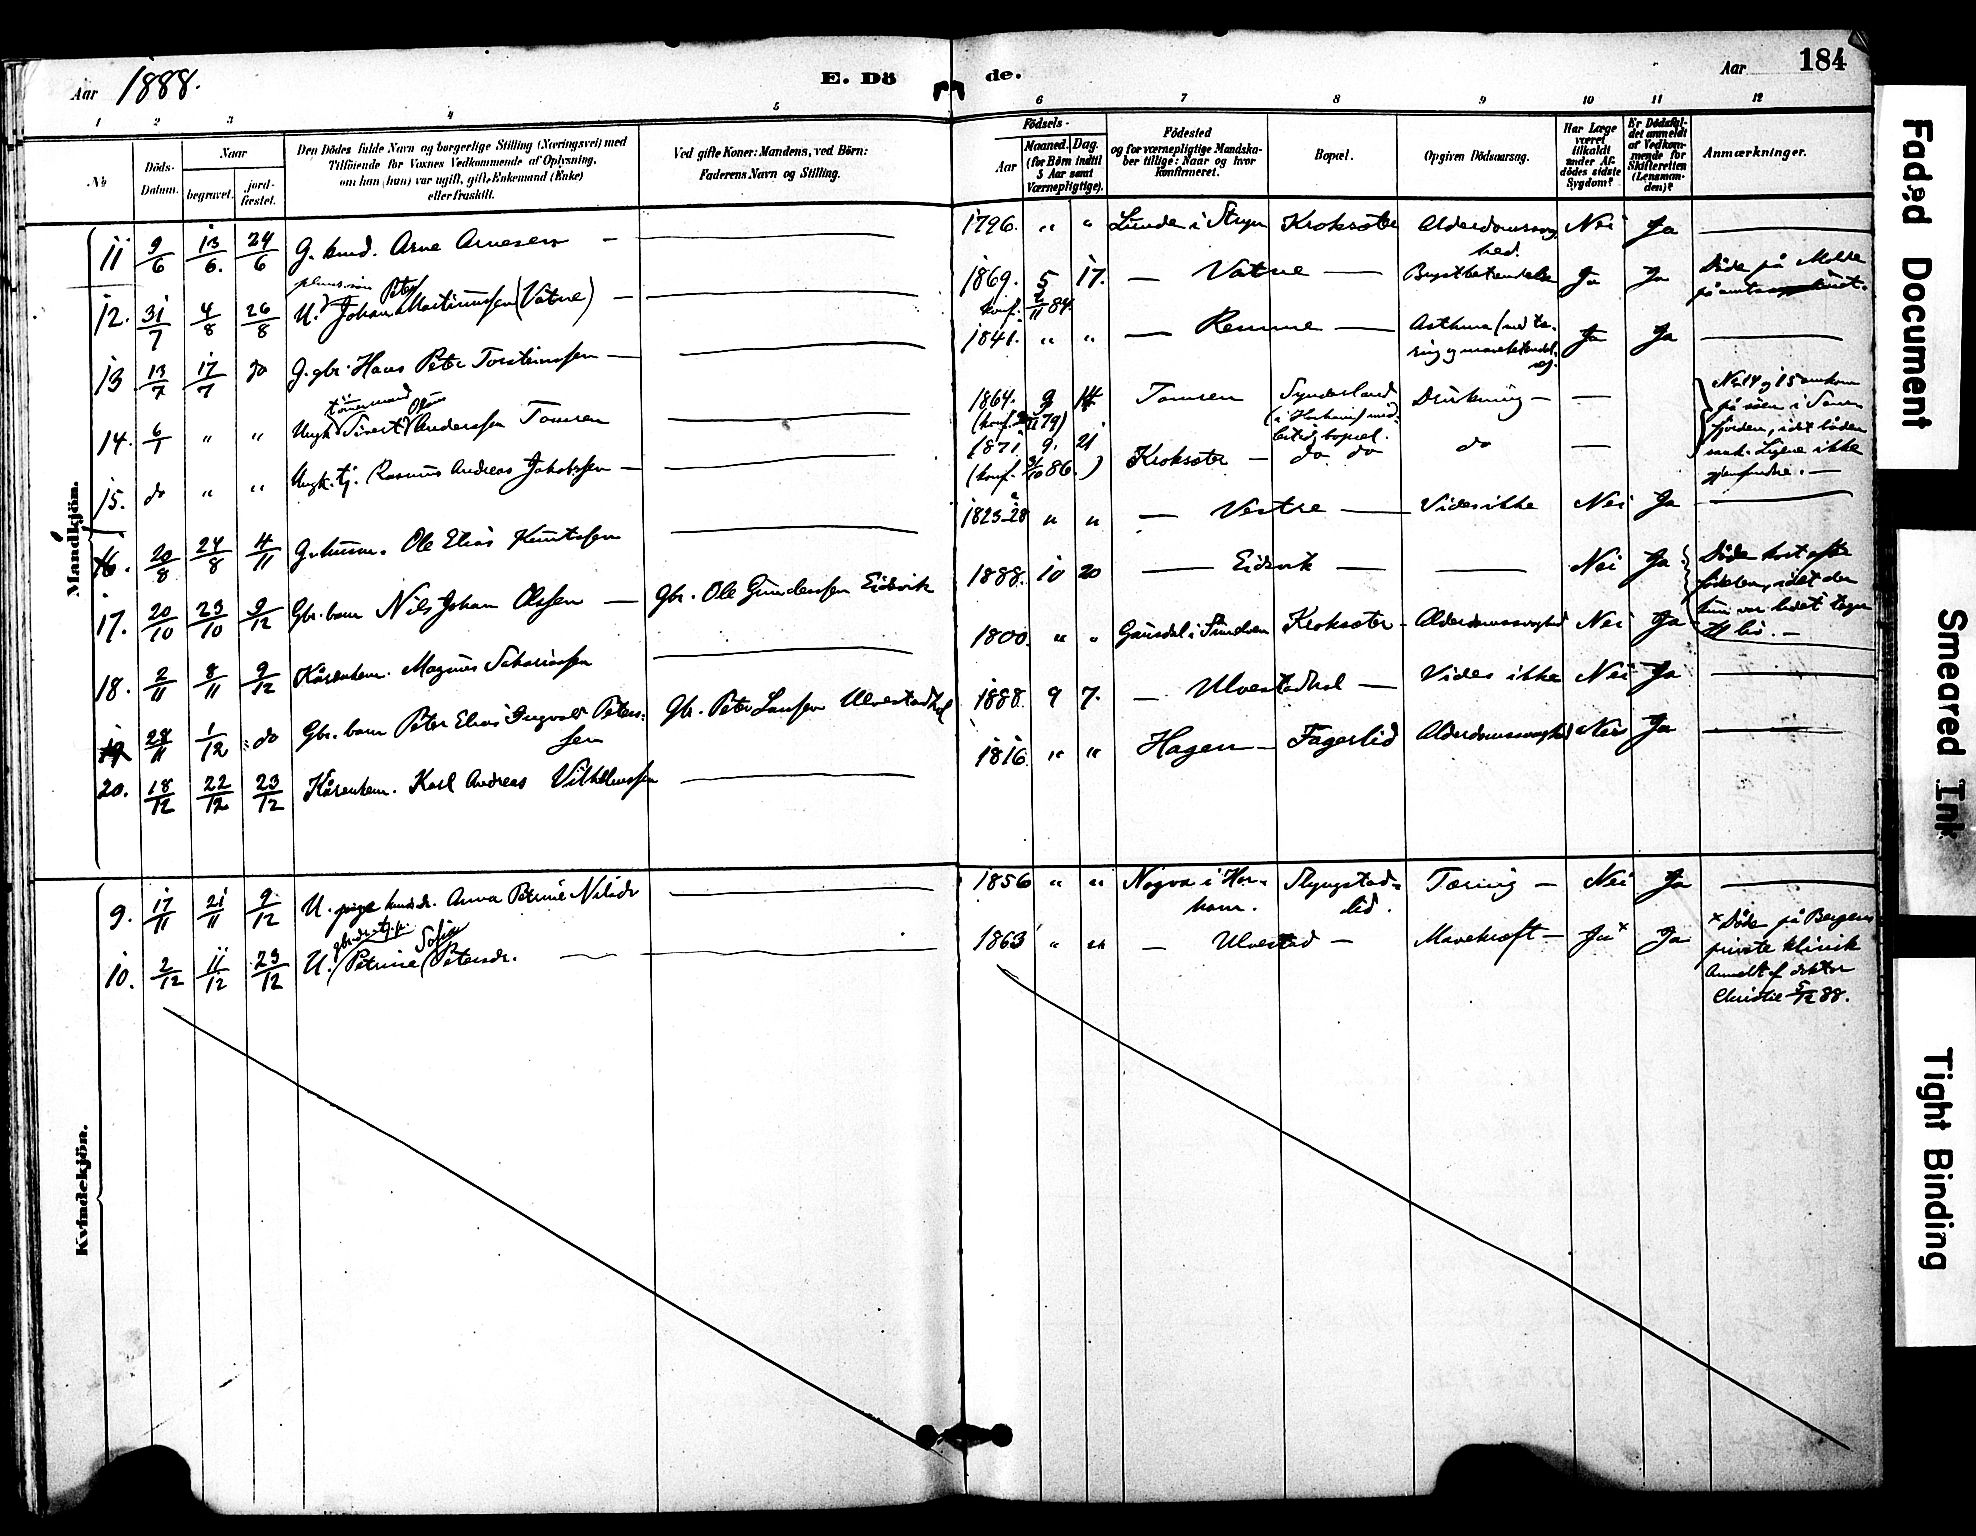 Aar 1888. E. Dö de. Aar 184
1 2 3 4 5 6 7 8 9 10 11 12
No
Döds-
Datum.
Naar
begravet.
jord-
fæstet.
Den Dödes fulde Navn og borgerlige Stilling (Næringsvei) med
Tilföiende for Voxnes Vedkommende af Oplysning,
om han (hun) var ugift, gift, Enkemand (Enke)
eller fraskilt.
Ved gifte Koner: Mandens, ved Börn:
Faderens Navn og Stilling.
Födsels-
Aar
Maaned. Dag.
(for Börn indtil
5 Aar samt
Værnepligtige).
Födested
og for værnepligtige Mandska-
ber tillige: Naar og hvor
konfirmeret.
Bopæl.
Opgiven Dödsaarsag.
Har Læge
været
tilkaldt
under Af-
dödes sidste
Sygdom?
Er Dödsfal-
det anmeldt
af Vedkom-
mende for
Skifteretten
(Lensman-
den)?
Anmærkninger.
Mandkjön.
11 9/6 13/6. 24/6 G. kmd. Arne Arnesen — 1796. " " Lunde i Stryn Kroksæter Alderdomssvag
hed. Nei Ja —
12. 31/7 4/8 26/8 U. Johan Peter Martinussen (Vatne) — 1869. 5 17. — Vatne — Brystbetændelse Ja Ja Döde på Molde
konf. 2/11 84.
13 13/7 17/7 do G. gbr. Hans Peter Torsteinssen — 1841. " " — Remme — Asthma (med tæ-
ring og mavebetændel- Ja Ja —
14. 6/7 " " Ungk. tömermand Sivert Olaus Anderssen Tomren — 1864. 9 14 Tomren Synderland Drukning — —
(konf. 79) (i Harham) mid-
lertidig bopæl.
No 14 og 15 omkom
på söen i
fjorden, idet båden
sank. Ligene ikke
gjenfundne. —
15. do " " Ungk. tj. Rasmus Andreas Jakobssen — 1871 9. 21 Kroksæter — do do do —
(konf. 3/10 86.)
16. 20/8 24/8 4/11 G. husm. Ole Elias Knutssen — 1823-28 " " — Vestre — Vides ikke Nei Ja —
17. 20/10 23/10 9/12 Gbr. barn Nils Johan Olssen — Gbr. Ole Gunderssen Eidsvik 1888. 10 20 — Eidsvik — — Nei Ja Döde kort efter
födselen, idet der
kun var lidet tegn
til liv. —
18. 2/11 8/11 9/12 Kårenkem. Magnus Sakariassen — 1800. " " Gausdal i Sundven Kroksæter — Alderdomssvaghed Nei Ja
19 28/11 1/12 do Gbr. barn Peter Elias Ingvald Peters-
sen Gbr. Peter Larssen Ulvestadhol 1888. 9 7. — Ulvestadhol — Vides ikke Nei Ja —
20. 18/12 22/12 23/12 Kårenkem. Karl Andreas Vilhelmssen — 1816 " " Hagen — Fagerlid Alderdomssvaghed Nei Ja —
Kvindekjön.
9. 17/11 21/11 9/12 U. pige Anna Petrine Nilsdr — 1856 " " Nogva i Har-
ham. Slyngstad-
lid. Tæring — Nei Ja —
10. 2/12 11/12 23/12 U. Petrine Sofie Petersdr. — 1863 " " — Ulvestad — Mavekræft — Ja x Ja x Döde på Bergens
private klinik
Anmeldt af doktor
Christie 5/12 88.
Faded Document
Smeared Ink
Tight Binding